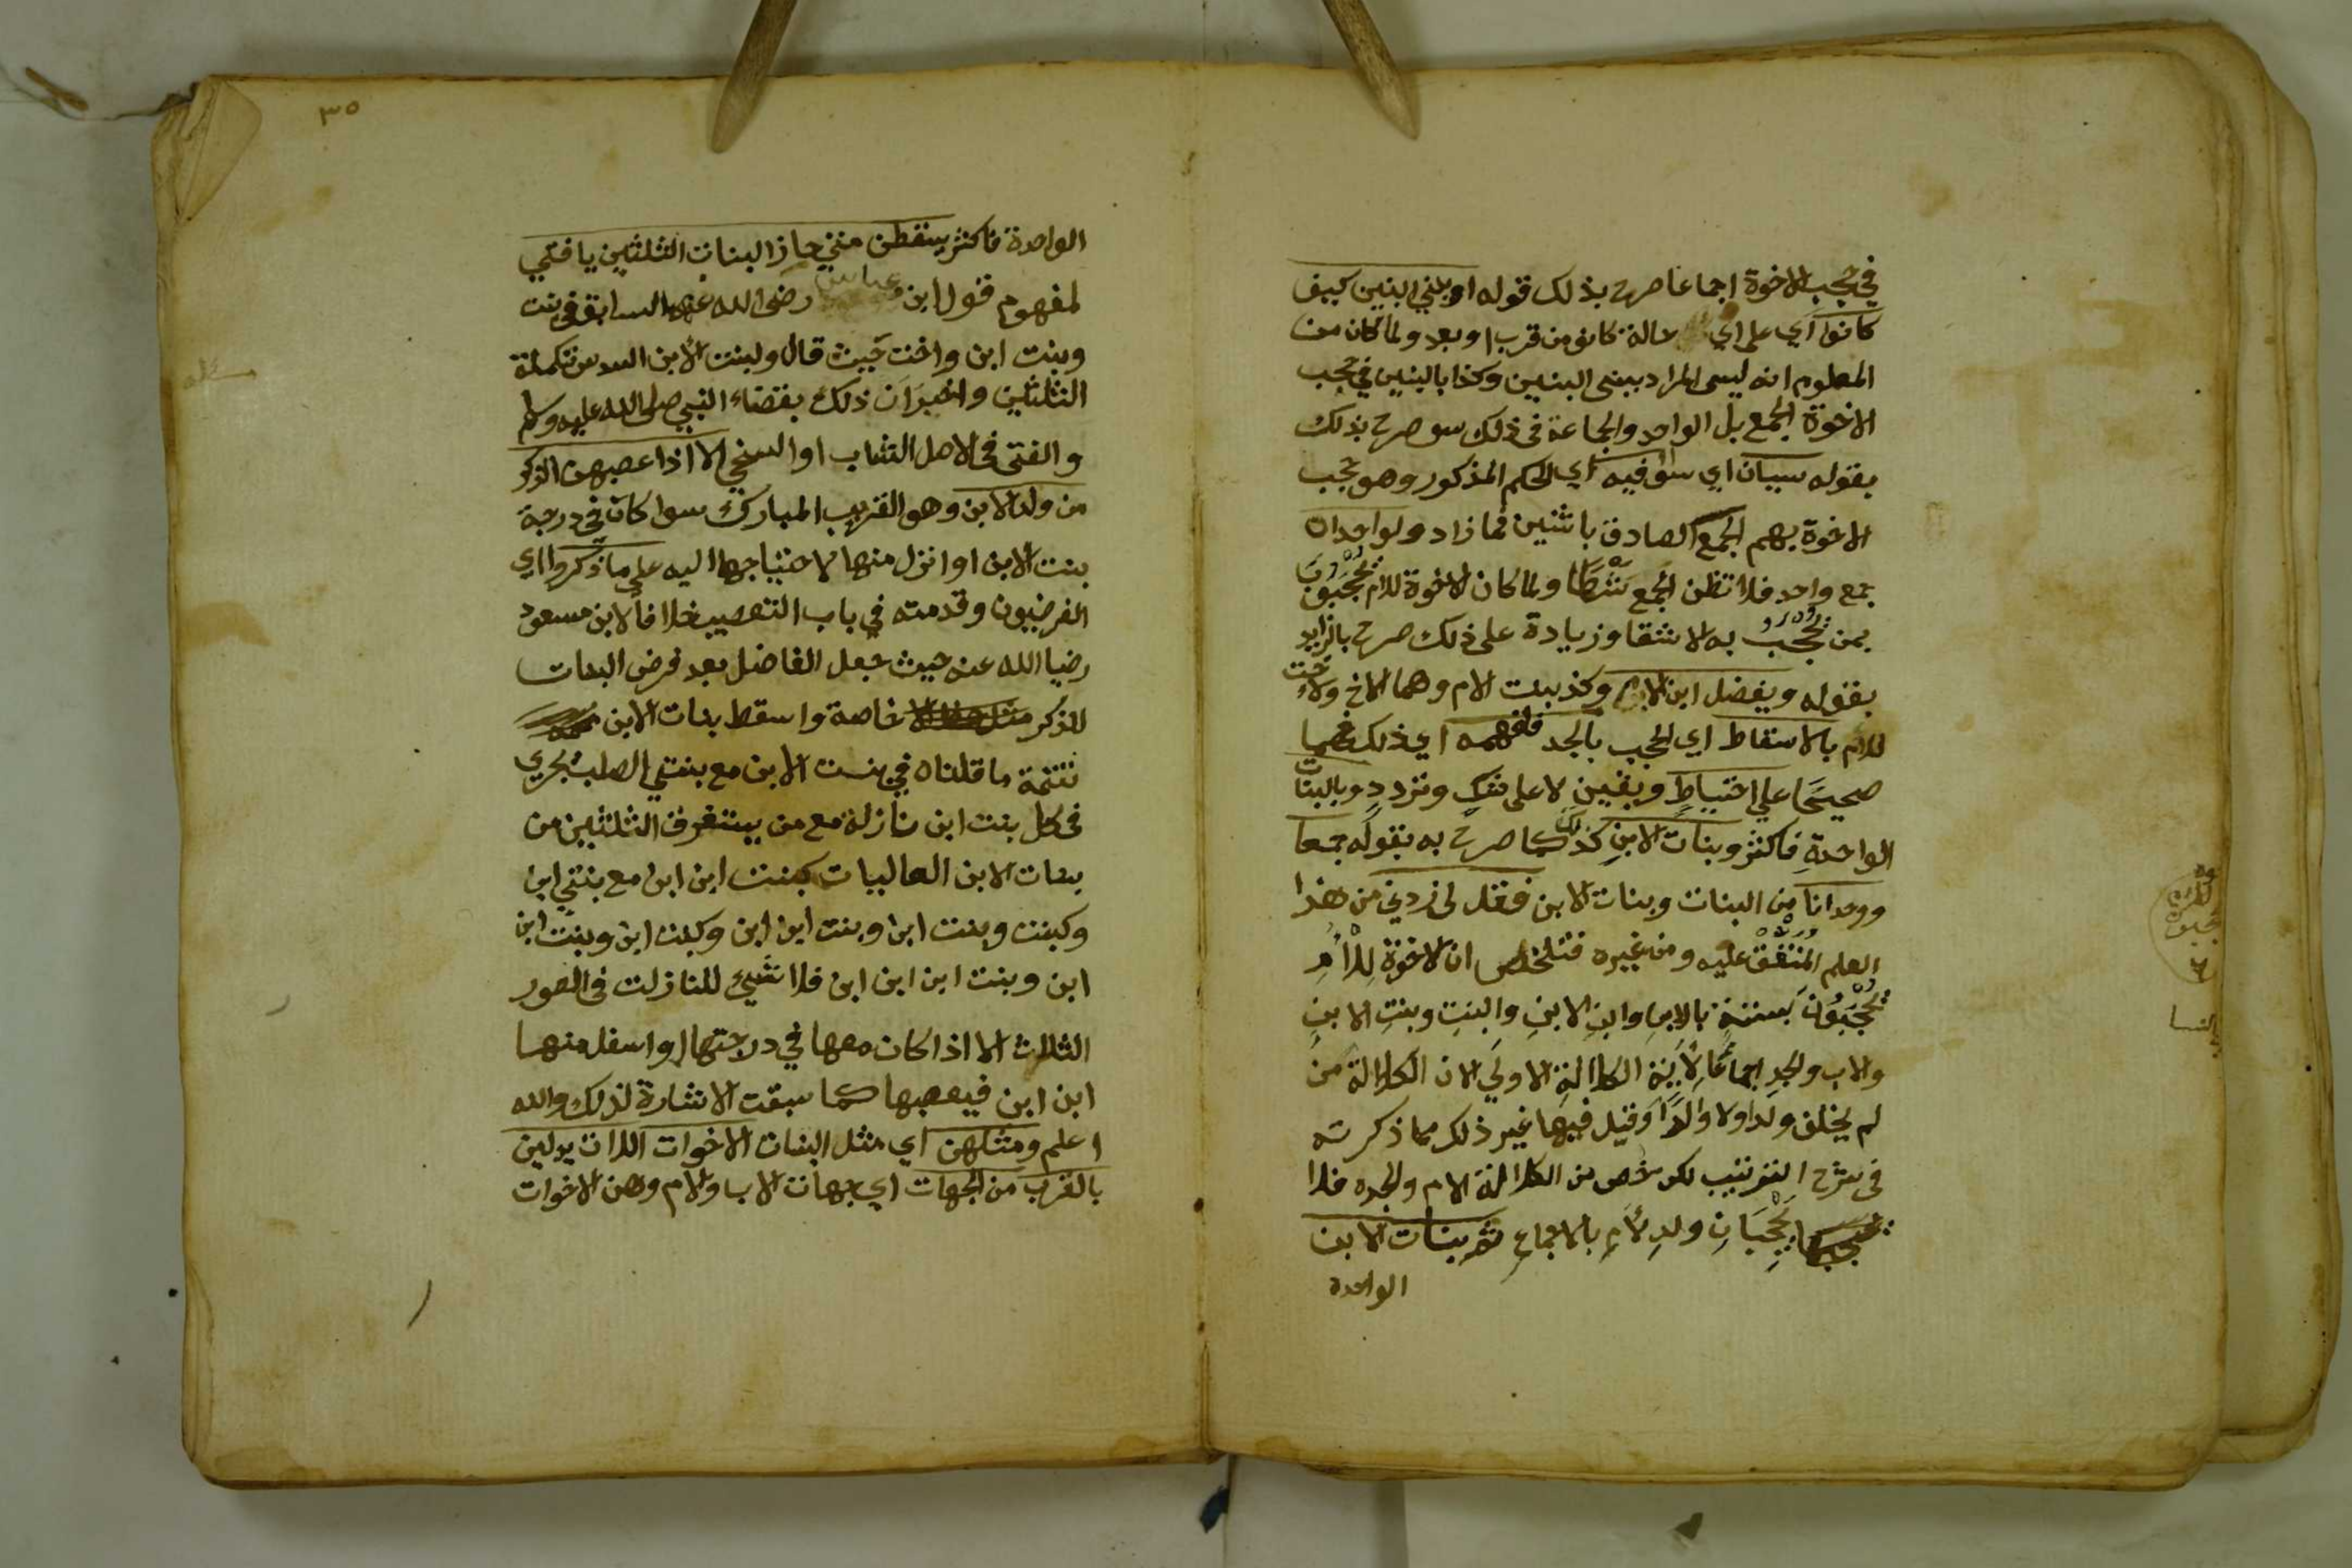 في حجب الاخوة اجماعا صرح بذلك قوله او ببني البنين كيف
كانوا اي على اي حالة كانو من قرب او بعد ولما كان من
المعلوم انه ليس المراد ببني البنين وكذا بالبنين في حجب
الاخوة الجمع بل الواحد والجماعة في ذلك سو صرح بذلك
بقوله سيان اي سوا فيه اي الحكم المذكور وهو حجب
الاخوة بهم الجمع الصادق باثنين فما زاد ولوا حدان
جمع واحد فلا تظن الجمع شرطا ولما كان الاخوة للام يحجبون
بمن يحجب به الاشقا وزيادة على ذلك صرح بالزايد
بقوله ويفضل ابن الام وكذ بنت الام وهما الاخ والاخت
للام بالاسقاط اي الحجب بالجد فافهمه اي ذلك فهما
صحيحا علي احتياط ويقين لا على شك وتردد وبالبنات
الواحدة فاكثر وبنات الابن كذلك كما صرح به بقوله جمعا
ووحدانا من البنات وبنات الابن فقل لي زدني من هذا
العلم المتفق عليه ومن غيره فتلخص ان الاخوة للام
يحجبون بستة بالابن وابن الابن والبنت وبنت الابن
والاب والجد اجماعا لاية الكلالة الاولي لان الكلالة من
لم يخلف ولدا ولا والدا وقيل فيها غير ذلك مما ذكرته
في شرح الترتيب لكن خص من الكلالة الام والجده فلا
يحجبان ولد الام بالاجماع ثم بنات الابن
الواحدة
٣٥
الواحدة فاكثر يسقطن متي حاز البنات الثلثين يا فتي
لمفهوم قول ابن عباس رضى الله عنهما السابق في بنت
وبنت ابن واخت حيث قال ولبنت الابن السدس تكملة
الثلثين واخبر ان ذلك بقضاء النبي صلى الله عليه وسلم
والفتى في الاصل الشاب او السخي الا اذا عصبهن الذكر
من ولد الابن وهو القريب المبارك سوا كان في درجة
بنت الابن او انزل منها لاحتياجها اليه على ما ذكروا اي
الفرضيون وقدمته في باب التعصيب خلافا لابن مسعود
رضيا الله عنه حيث جعل الفاضل بعد فرض البنات
للذكر خاصة واسقط بنات الابن
تتمة ما قلناه في بنت الابن مع بنتي الصلب يجري
في كل بنت ابن نازلة مع من يستغرق الثلثين من
بنات الابن العاليات كبنت ابن ابن مع بنتي ابن
وكبنت وبنت ابن وبنت ابن ابن وكبنت ابن وبنت ابن
ابن وبنت ابن ابن ابن فلا شيئ للنازلت في الصور
الثلاث الا اذا كان معها في درجتها او اسفل منها
ابن ابن فيعصبها كما سبقت الاشارة لذلك والله
اعلم ومثلهن اي مثل البنات الاخوات اللات يدلين
بالقرب من الجهات اي جهات الاب والام وهن الاخوات